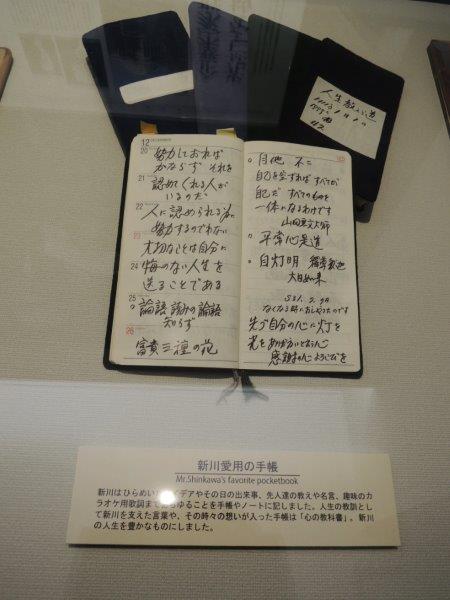 12
20 努力しておれば
かならず それを
21 認めてくれる人が
いるのだ
22 人に認められる為に
23 努力するのでない
大切なことは自分に
24 悔のない人生を
送ることである
25 論語読みの論語
知らず
26
富貴 の花
自他 不二
自己を空ずれば すべてが
己だ すべてのものを
一体になるわけです
山田 大師
平常心是道
自灯明
大日如来
なくなる時に
先ヅ自分の心に灯を
光をありがたいと云う心
感謝の心 よろこびを
新川愛用の手帳
Mr.Shinkawa's favorite pocketbook
新川はひらめいたアイデアやその日の出来事、先人達の教えや名言、趣味のカ
ラオケ用歌詞まであらゆることを手帳やノートに記しました。人生の教訓とし
て新川を支えた言葉や、その時々の想いが入った手帳は「心の教科書」。新川
の人生を豊かなものにしました。